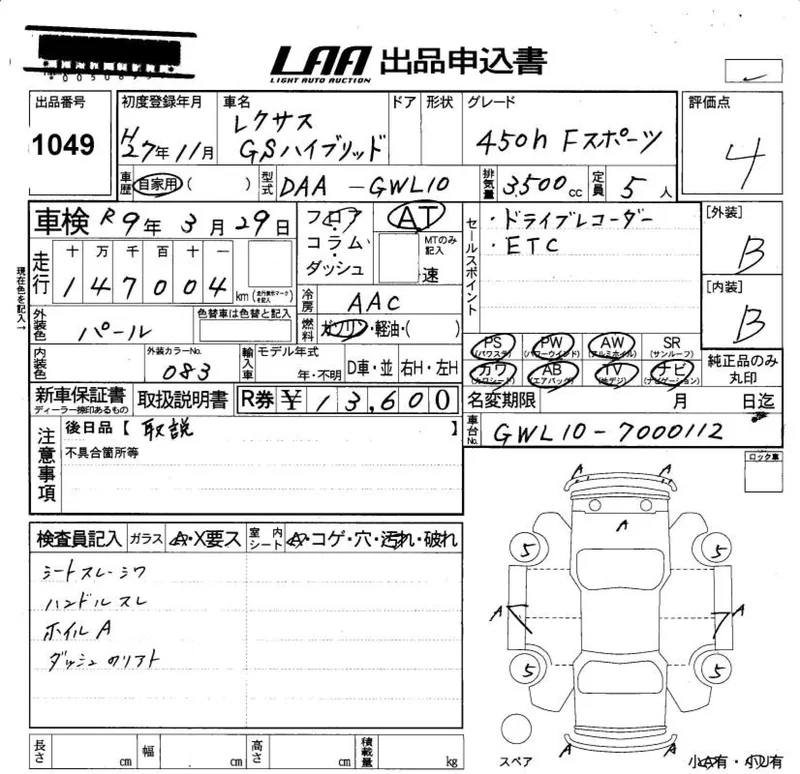 LAA 出品申込書
LIGHT AUTO AUCTION
出品番号
1049
初度登録年月
H27年11月
車名
レクサス
GSハイブリッド
ドア
形状
グレード
450h Fスポーツ
評価点
4
車歴 自家用 ( )
型式 DAA-GWL10
排気量 3,500cc
定員 5人
車検 R9年3月29日
フロア
コラム・
ダッシュ
AT
MTのみ記入
速
セールスポイント
・ドライブレコーダー
・ETC
[外装]
B
[内装]
B
現在色を記入→
走行
十 万 千 百 十 一
1 4 7 0 0 4
km (走行表示マークを記入)
冷房 AAC
燃料 ガソリン・軽油・( )
外装色 パール
色替車は色替と記入
内装色
外装カラーNo.
083
輸入車
モデル年式
年・不明
D車・並
右H・左H
PS (パワステ)
PW (パワーウインド)
AW (アルミホイル)
SR (サンルーフ)
カワ (カワシート)
AB (エアバッグ)
TV (地デジ)
ナビ (ナビゲーション)
純正品のみ
丸印
新車保証書
ディーラー捺印あるもの
取扱説明書
R券 ¥13,600
名変期限 月 日迄
注意事項
後日品【 取説 】
不具合箇所等
車台No. GWL10-7000112
ロック車
検査員記入
ガラス
A・X要ス
室内シート
A・コゲ・穴・汚れ・破れ
シートスレ・シワ
ハンドルスレ
ホイルA
ダッシュのリアト
A A
A
5 5
A A
5 5
A A
スペア
小A有・小U有
長さ cm
幅 cm
高さ cm
積載量 kg